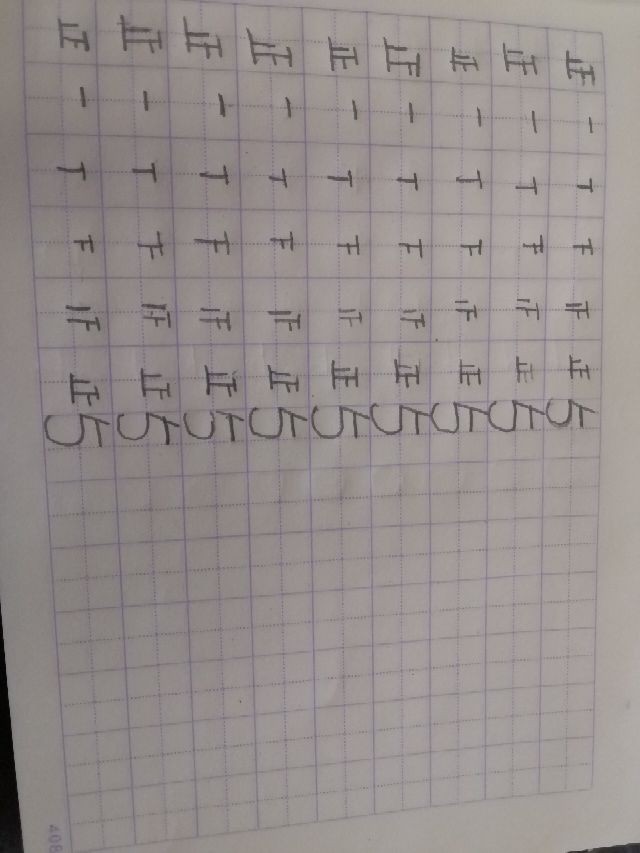 正 一 丅 下 𝍵 正 5
正 一 丅 下 𝍵 正 5
正 一 丅 下 𝍵 正 5
正 一 丅 下 𝍵 正 5
正 一 丅 下 𝍵 正 5
正 一 丅 下 𝍵 正 5
正 一 丅 下 𝍵 正 5
正 一 丅 下 𝍵 正 5
正 一 丅 下 𝍵 正 5
408